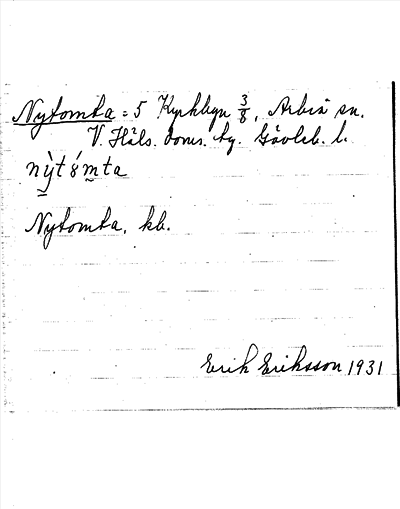 Nytomta = 5 Kyrkbyn 3/8, Arbrå sn.
V. Häls. doms. tg. Gävleb. l.
nỳtǿmta
Nytomta, kb.
Erik Eriksson 1931